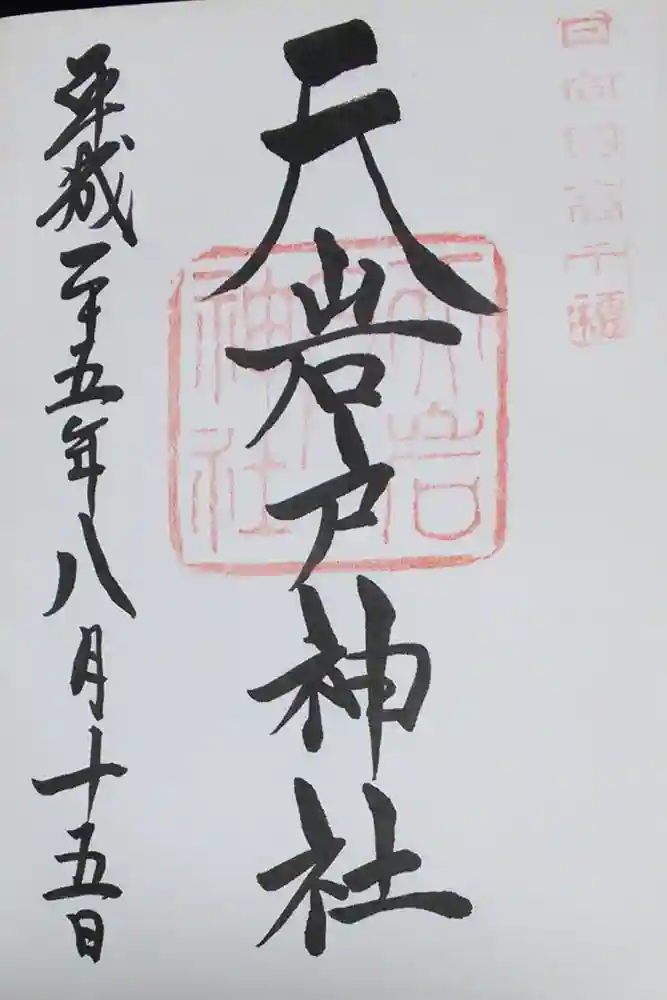 日向国高千穂
天岩戸神社
天岩戸神社
平成二十五年八月十五日